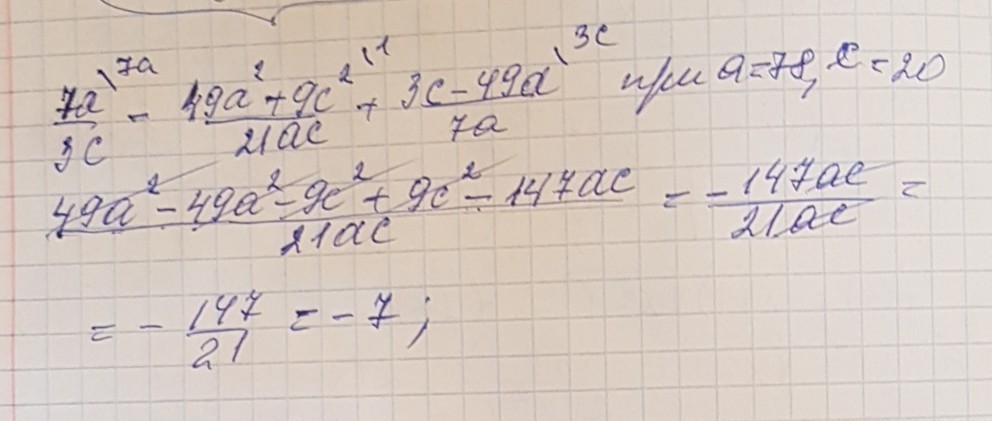 7a\7a/3c - 49a²+9c²\1/21ac + 3c-49a\3c/7a при a=78, c=20
49a²-49a²-9c²+9c²-147ac/21ac = -147ac/21ac =
= - 147/21 = -7;